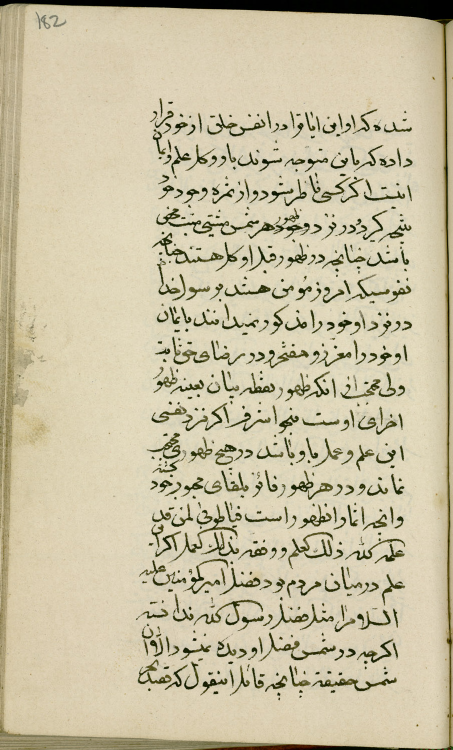 182
شده که او این ایات را در انفس خلق از خود قرار
داده که باین متوجه شوند باو و کل علم و ایمان
اینست اگر کسی ناظر شود و از ثمره وجود خود
متحجب نگردد در نزد ظهور هر شمس
باشند چنانچه در ظهور قبل او کل هستند چنانچه
نفوسیکه امروز مؤمن هستند برسول خدا
در نزد او خود را مذکور نمیدانند بایمان
او خود را معزز و مفتخر و در رضای حق ثابت
ولی محتجب از انکه ظهور نقطه بیان بعینه ظهور
اخرای اوست بنحو اشرف اگر نزد نفسی
این علم و عمل باو باشد در هیچ ظهوری محتجب
نماند و در هر ظهور فائز بلقای محبوب خود گشته
وانچه اثمار انظهور است فیا طوبی لمن قد
علمه الله ذلک العلم و وفقه بذلک العمل اگر این
علم در میان مردم بود فضل امیر المؤمنین علیه
السلام را مثل فضل رسول الله ندانسته
اگر چه در شمس فضل او دیده نمیشود الا و ان
شمس حقیقة چنانچه قائل اینقول که